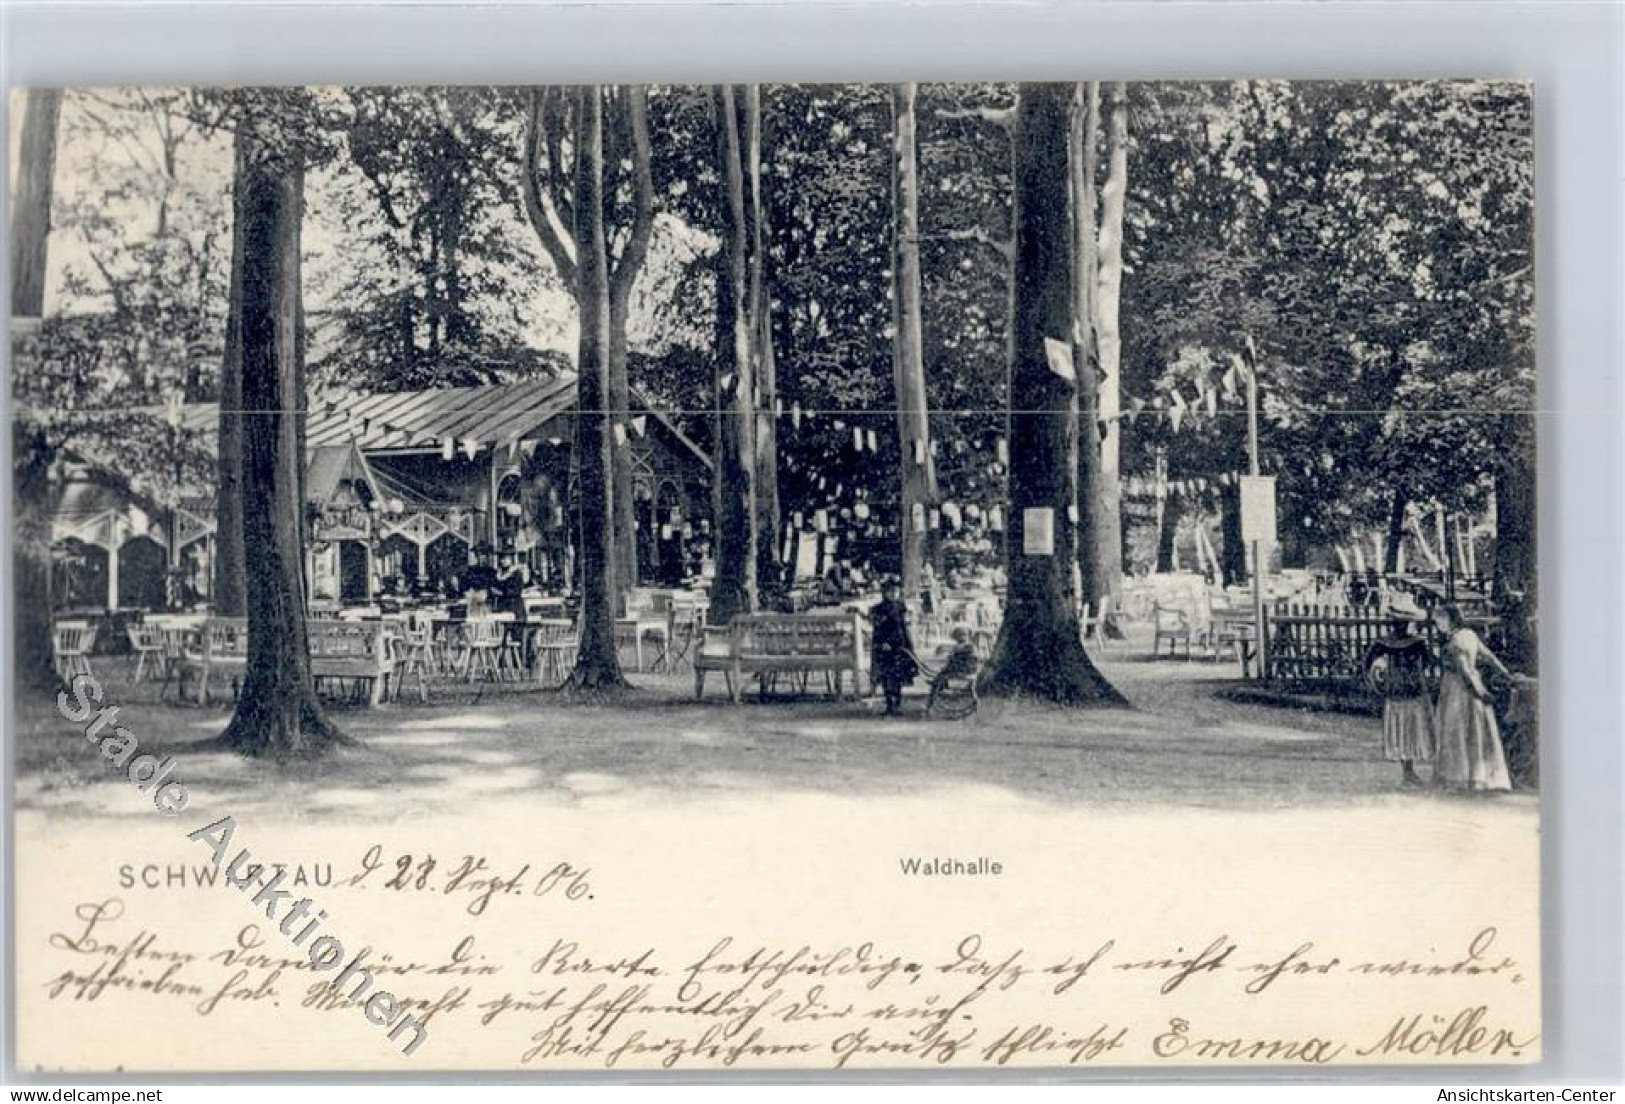 SCHWARTAU d. 28. Sept. 06.
Waldhalle
Besten Dank für die Karte. Entschuldige, dasz ich nicht eher wieder-
geschrieben hab. Mir geht gut hoffentlich Dir auch.
Mit herzlichem Grusz schlieszt Emma Möller.
Stade Auktionen
delcampe.net
Ansichtskarten-Center